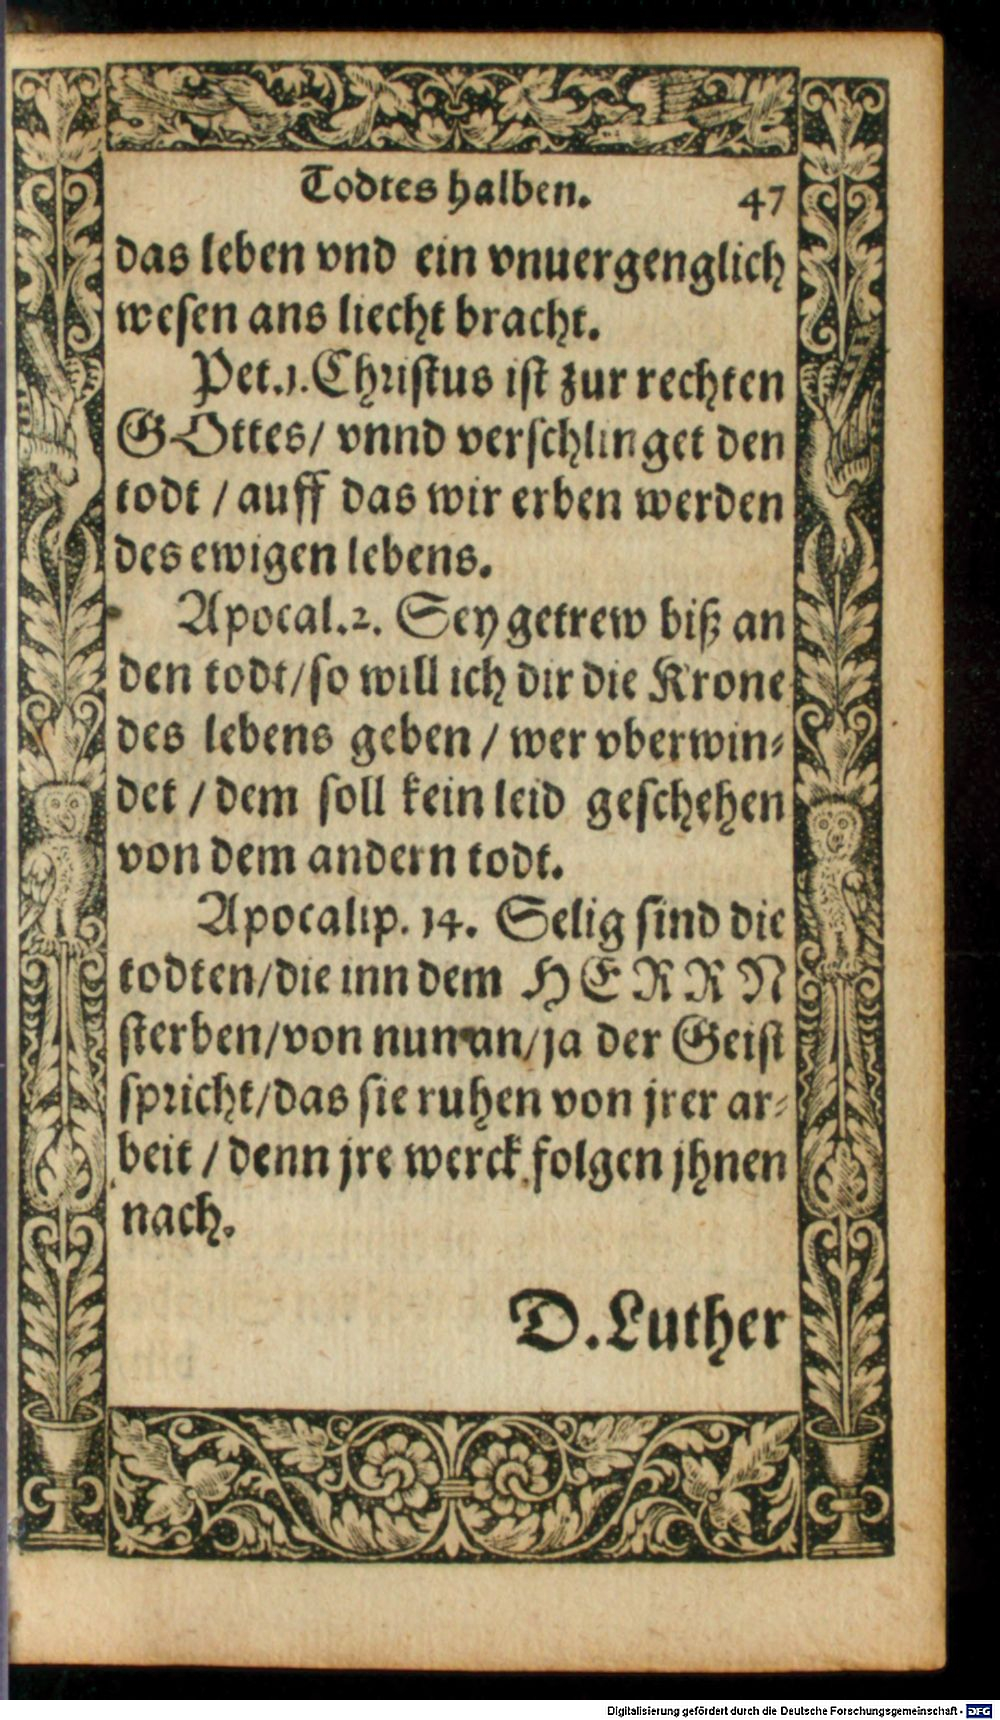 Todtes halben. 47
das leben vnd ein vnuergenglich
wesen ans liecht bracht.
Pet. 1. Christus ist zur rechten
GOttes / vnnd verschlinget den
todt / auff das wir erben werden
des ewigen lebens.
Apocal. 2. Sey getrew biß an
den todt / so will ich dir die Krone
des lebens geben / wer vberwin-
det / dem soll kein leid geschehen
von dem andern todt.
Apocalip. 14. Selig sind die
todten / die inn dem HERRN
sterben / von nun an / ja der Geist
spricht / das sie ruhen von jrer ar-
beit / denn jre werck folgen jhnen
nach.
D. Luther
Digitalisierung gefördert durch die Deutsche Forschungsgemeinschaft - DFG